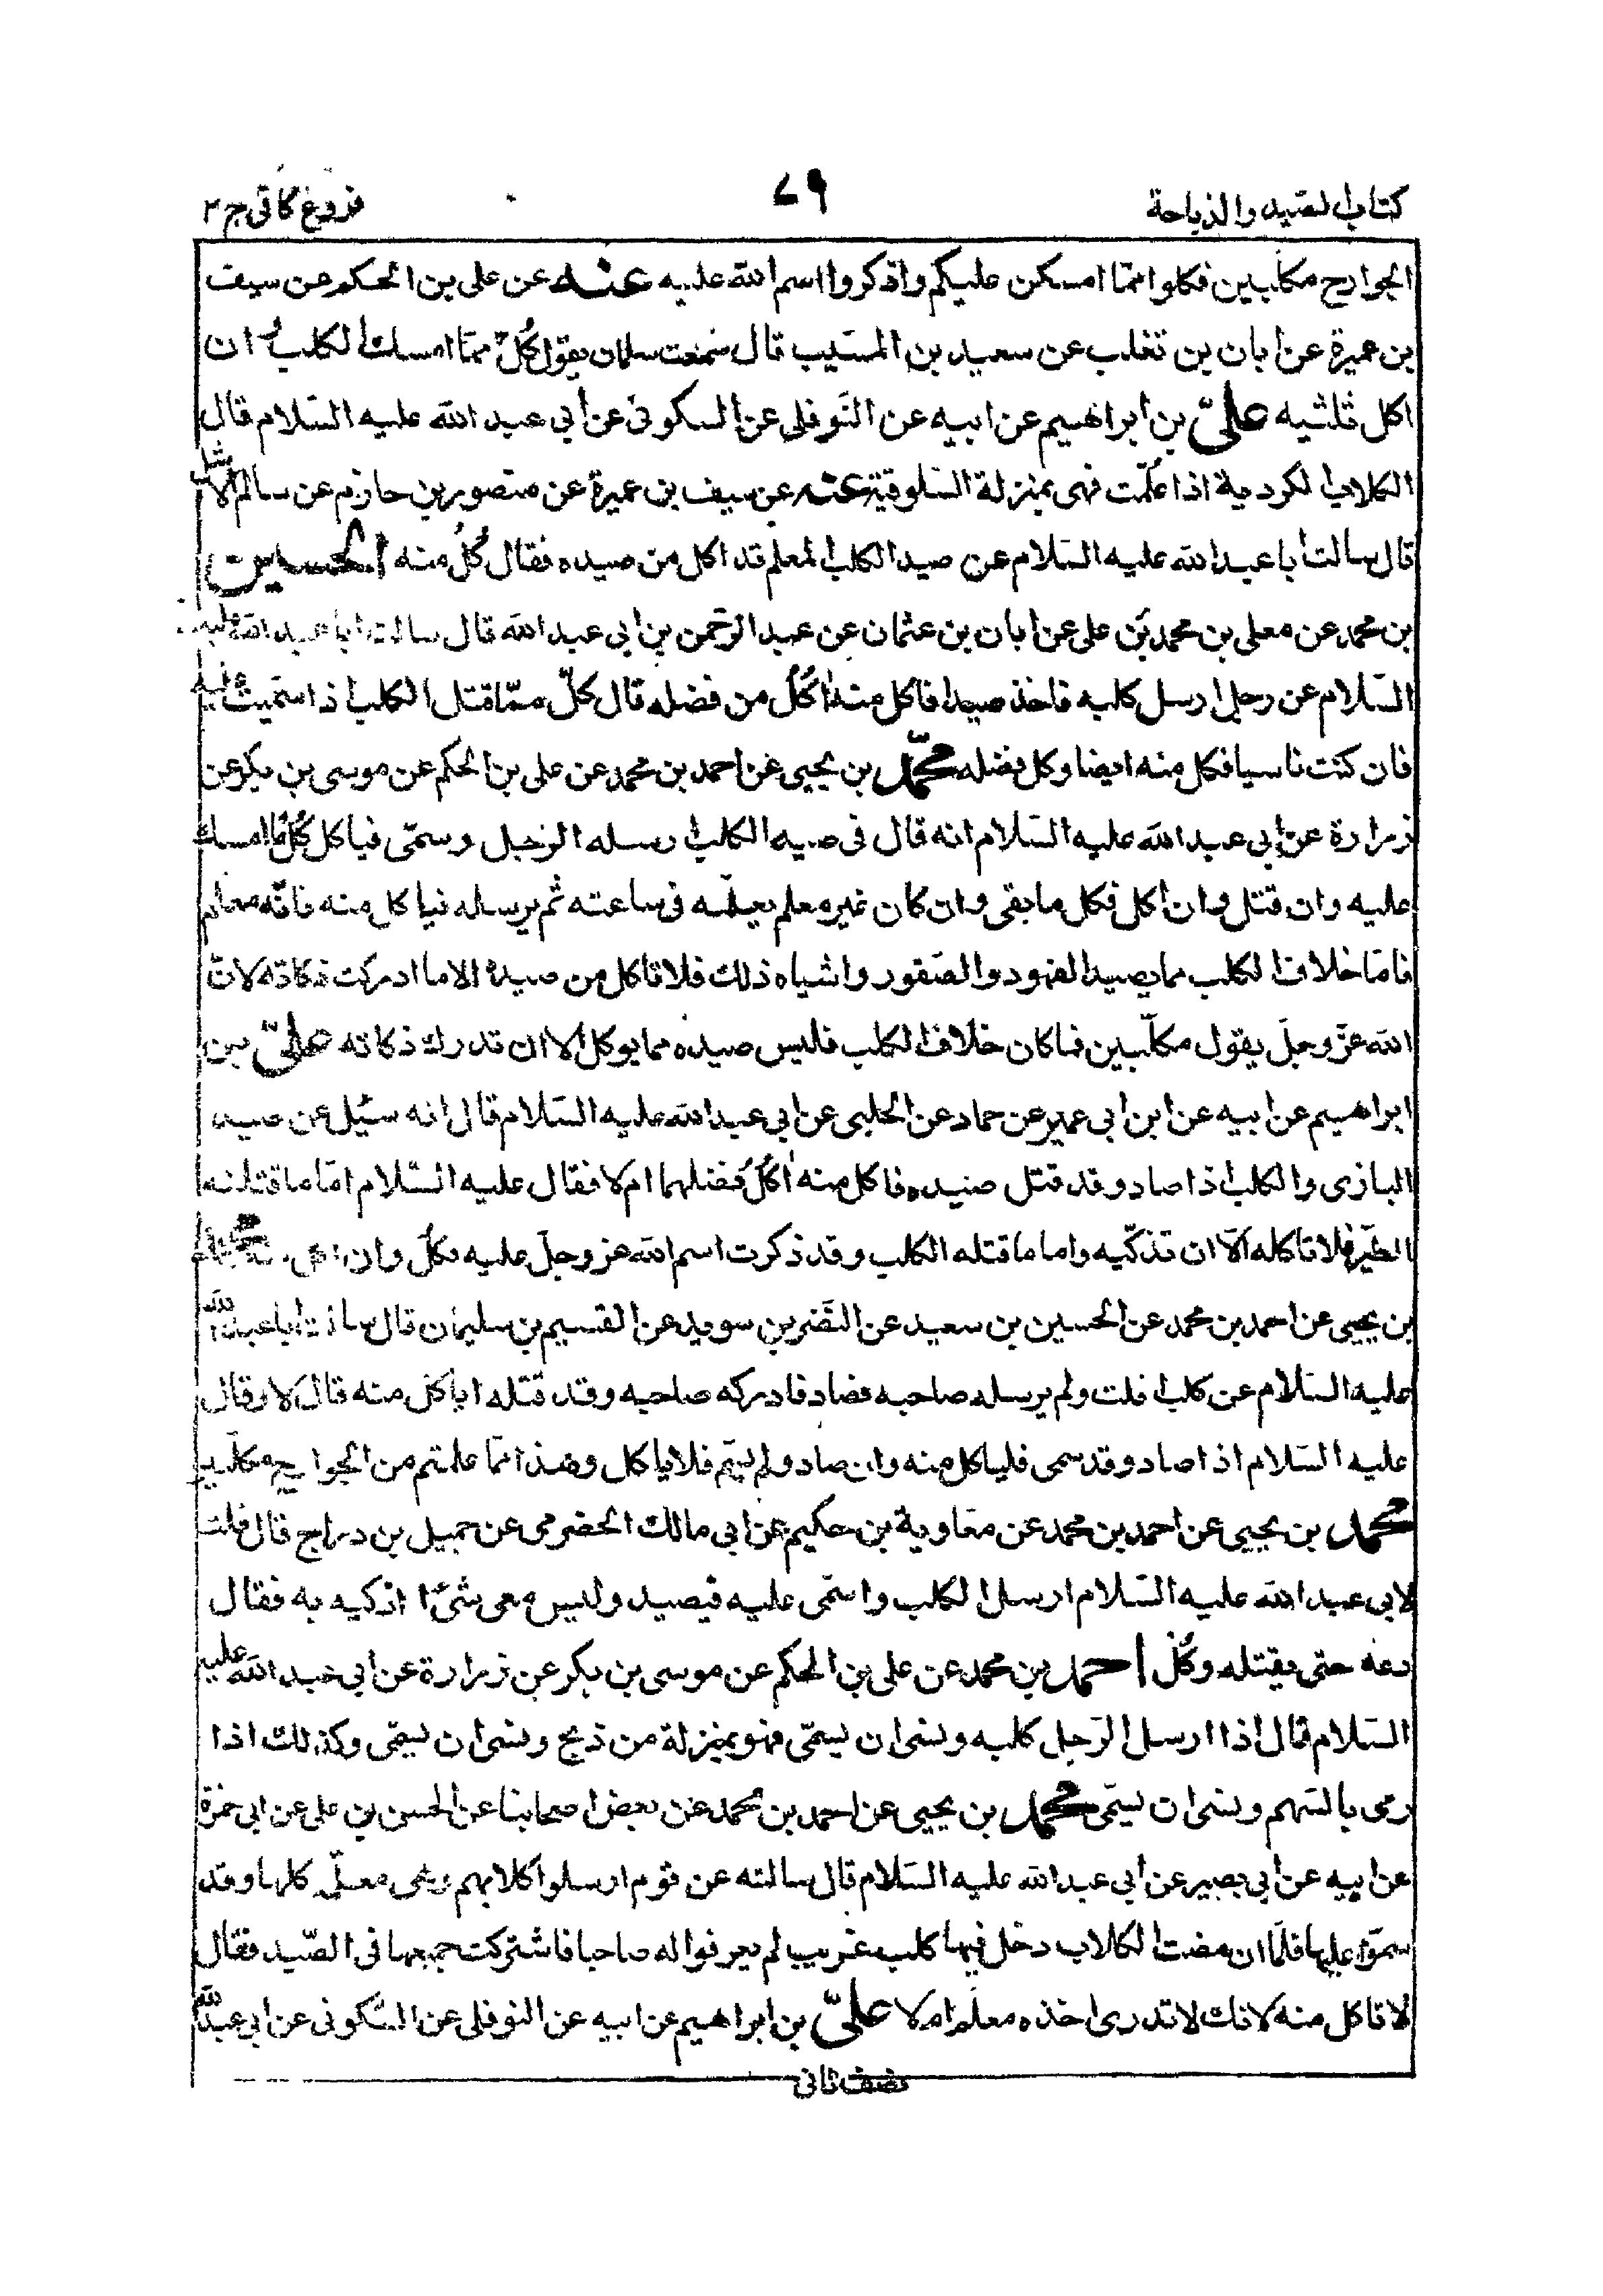 كتاب الصيد والذباحة
٧٩
فروع كافى ج ٢
الجوارح مكلبين فكلوا ممّا امسكن عليكم واذكروا اسم الله عليه عنه عن على بن الحكم عن سيف
بن عميرة عن ابان بن تغلب عن سعيد بن المسيب قال سمعت سلمان يقول كُلْ ممّا امسك الكلب و ان
اكل ثلثيه علىّ بن ابراهيم عن ابيه عن النوفلى عن السكونى عن ابى عبد الله عليه السلام قال
الكلاب الكردية اذا عُلّمت فهى بمنزلة السلوقية عنه عن سيف بن عميرة عن منصور بن حازم عن سالم الاشل
قال سالت ابا عبد الله عليه السلام عن صيد الكلب المعلم قد اكل من صيده فقال كُلْ منه الحسين
بن محمد عن معلى بن محمد بن على عن ابان بن عثمان عن عبد الرحمن بن ابى عبد الله قال سالت ابا عبد الله عليه
السلام عن رجل ارسل كلبه فاخذ صيدا فاكل منه اٰكُلُ من فضله قال كلْ ممّا قتل الكلب اذا سمّيت عليه
فان كنت ناسيا فكل منه ايضا وكل فضله محمّد بن يحيى عن احمد بن محمد عن على بن الحكم عن موسى بن بكر عن
زرارة عن ابى عبد الله عليه السلام انه قال فى صيد الكلب ارسله الرجل وسمّى فياكل كُلْ ما امسك
عليه وان قتل وان اكل فكل ما بقى وان كان غير معلم يعلّمه فى ساعته ثم يرسله فياكل منه فانّه معلم
فامّا خلاف الكلب مما يصيد الفهود والصقور واشباه ذلك فلا تاكل من صيده الا ما ادركت ذكاته لانّ
الله عزّ وجلّ يقول مكلّبين فما كان خلاف الكلب فليس صيده مما يوكل الا ان تدرك ذكاته علىّ بن
ابراهيم عن ابيه عن ابن ابى عمير عن حماد عن الحلبى عن ابى عبد الله عليه السلام قال انه سئل عن صيد
البازى والكلب اذا صاد وقد قتل صيده فاكل منه اٰكُلُ فضلهما ام لا فقال عليه السلام امّا ما قتلته
الطير فلا تاكله الّا ان تذكّيه واما ما قتله الكلب وقد ذكرت اسم الله عز وجل عليه فكُلْ وان محمد
بن يحيى عن احمد بن محمد عن الحسين بن سعيد عن النضر بن سويد عن القسيم بن سليمان قال سالت ابا عبد الله
عليه السلام عن كلب افلت ولم يرسله صاحبه فصاد فادركه صاحبه وقد قتله اياكل منه قال لا وقال
عليه السلام اذا صاد وقد سمى فلياكل منه وان صاد ولم يسم فلا ياكل وهذا ممّا علمتم من الجوارح مكلبين
محمد بن يحيى عن احمد بن محمد عن معاوية بن حكيم عن ابى مالك الحضرمى عن جميل بن دراج قال قلت
لابى عبد الله عليه السلام ارسل الكلب واسمّى عليه فيصيد وليس معى شئ اذكيه به فقال
دعه حتى يقتله وكُلْ احمد بن محمد عن على بن الحكم عن موسى بن بكر عن زرارة عن ابى عبد الله عليه
السلام قال اذا ارسل الرجل كلبه ونسى ان يسمّى فهو بمنزلة من ذبح ونسى ان يسمّى وكذلك اذا
رمى بالسهم ونسى ان يسمّى محمد بن يحيى عن احمد بن محمد عن بعض اصحابنا عن الحسن بن على عن ابى حمزة
عن ابيه عن ابى بصير عن ابى عبد الله عليه السلام قال سالته عن قوم ارسلوا كلابهم وهى معلّمة كلها وقد
سمّوا عليها فلمّا ان مضت الكلاب دخل فيها كلب غريب لم يعرفوا له صاحبا فاشتركت جميعها فى الصّيد فقال
لا تاكل منه لانك لا تدرى اخذه معلم ام لا علىّ بن ابراهيم عن ابيه عن النوفلى عن السكونى عن ابى عبد الله
نصف ثانى